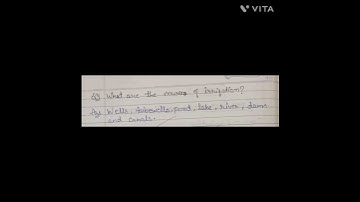 VITA
Q) What are the sources of irrigation?
A) Wells, tubewells, pond, lake, river, dams
and canals.